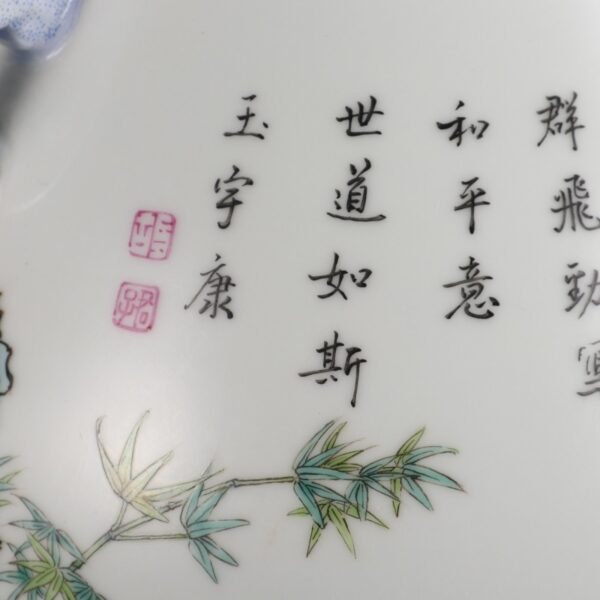 群飛勁寫
和平意
世道如斯
玉宇康